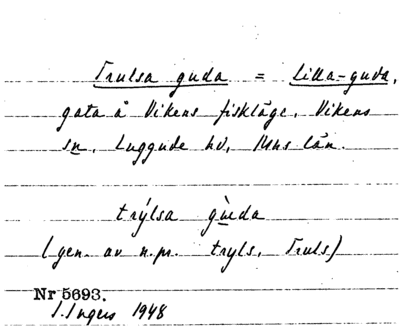 Trulsa guda = Lilla-guda,
gata å Vikens fiskläge, Vikens
sn, Luggude hd, Mhs län.
trýlsa gù̱da
(gen. av n.pr. tryls, Truls)
Nr 5693.
I. Ingers 1948